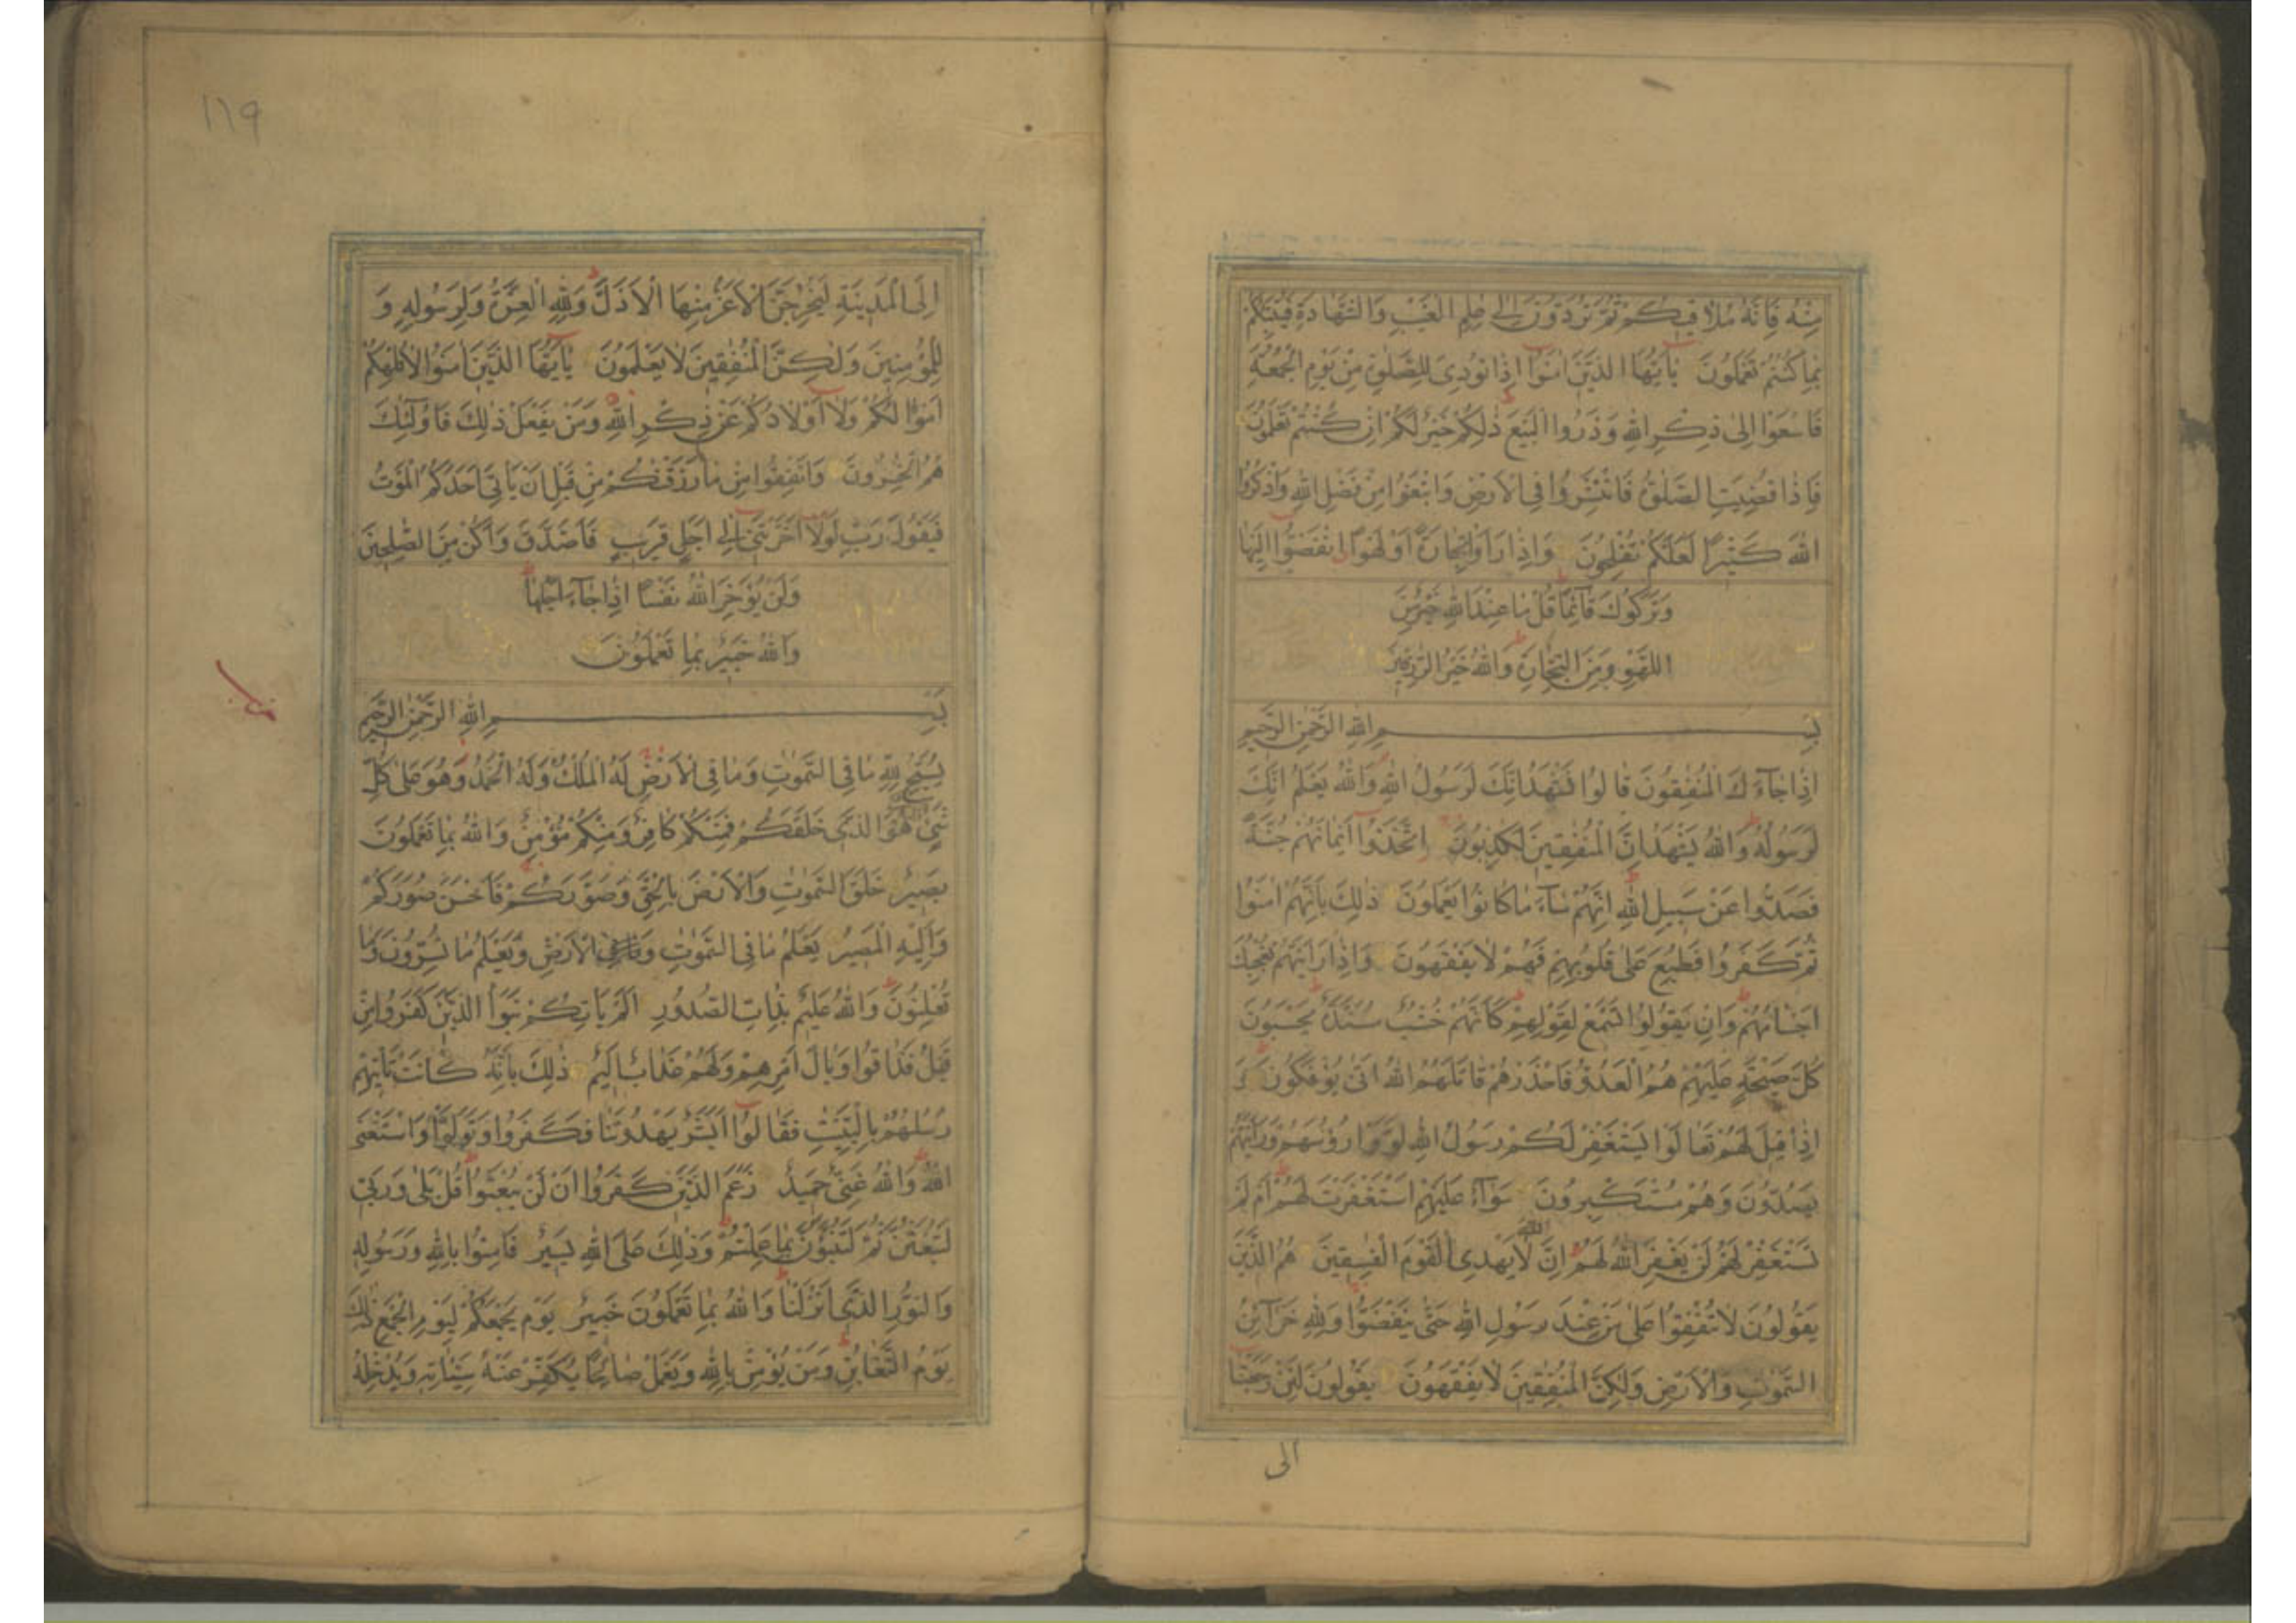 مِنْهُ فَاِنَّهُ مُلَاقِيكُمْ ثُمَّ تُرَدُّونَ اِلٰى عٰلِمِ الْغَيْبِ وَالشَّهَادَةِ فَيُنَبِّئُكُمْ
بِمَا كُنْتُمْ تَعْمَلُونَ يٰٓاَيُّهَا الَّذِينَ اٰمَنُوٓا اِذَا نُودِىَ لِلصَّلٰوةِ مِنْ يَوْمِ الْجُمُعَةِ
فَاسْعَوْا اِلٰى ذِكْرِ اللهِ وَذَرُوا الْبَيْعَ ذٰلِكُمْ خَيْرٌ لَكُمْ اِنْ كُنْتُمْ تَعْلَمُونَ
فَاِذَا قُضِيَتِ الصَّلٰوةُ فَانْتَشِرُوا فِى الْاَرْضِ وَابْتَغُوا مِنْ فَضْلِ اللهِ وَاذْكُرُوا
اللهَ كَثِيرًا لَعَلَّكُمْ تُفْلِحُونَ وَاِذَا رَاَوْا تِجَارَةً اَوْ لَهْوًا انْفَضُّوٓا اِلَيْهَا
وَتَرَكُوكَ قَآئِمًا قُلْ مَا عِنْدَ اللهِ خَيْرٌ مِنَ
اللَّهْوِ وَمِنَ التِّجَارَةِ وَاللهُ خَيْرُ الرّٰزِقِينَ
بِسْمِ اللهِ الرَّحْمٰنِ الرَّحِيمِ
اِذَا جَآءَكَ الْمُنٰفِقُونَ قَالُوا نَشْهَدُ اِنَّكَ لَرَسُولُ اللهِ وَاللهُ يَعْلَمُ اِنَّكَ
لَرَسُولُهُ وَاللهُ يَشْهَدُ اِنَّ الْمُنٰفِقِينَ لَكٰذِبُونَ اِتَّخَذُوٓا اَيْمَانَهُمْ جُنَّةً
فَصَدُّوا عَنْ سَبِيلِ اللهِ اِنَّهُمْ سَآءَ مَا كَانُوا يَعْمَلُونَ ذٰلِكَ بِاَنَّهُمْ اٰمَنُوا
ثُمَّ كَفَرُوا فَطُبِعَ عَلٰى قُلُوبِهِمْ فَهُمْ لَا يَفْقَهُونَ وَاِذَا رَاَيْتَهُمْ تُعْجِبُكَ
اَجْسَامُهُمْ وَاِنْ يَقُولُوا تَسْمَعْ لِقَوْلِهِمْ كَاَنَّهُمْ خُشُبٌ مُسَنَّدَةٌ يَحْسَبُونَ
كُلَّ صَيْحَةٍ عَلَيْهِمْ هُمُ الْعَدُوُّ فَاحْذَرْهُمْ قَاتَلَهُمُ اللهُ اَنّٰى يُؤْفَكُونَ وَ
اِذَا قِيلَ لَهُمْ تَعَالَوْا يَسْتَغْفِرْ لَكُمْ رَسُولُ اللهِ لَوَّوْا رُؤُسَهُمْ وَرَاَيْتَهُمْ
يَصُدُّونَ وَهُمْ مُسْتَكْبِرُونَ سَوَآءٌ عَلَيْهِمْ اَسْتَغْفَرْتَ لَهُمْ اَمْ لَمْ
تَسْتَغْفِرْ لَهُمْ لَنْ يَغْفِرَ اللهُ لَهُمْ اِنَّ اللهَ لَا يَهْدِى الْقَوْمَ الْفٰسِقِينَ هُمُ الَّذِينَ
يَقُولُونَ لَا تُنْفِقُوا عَلٰى مَنْ عِنْدَ رَسُولِ اللهِ حَتّٰى يَنْفَضُّوا وَلِلّٰهِ خَزَآئِنُ
السَّمٰوٰتِ وَالْاَرْضِ وَلٰكِنَّ الْمُنٰفِقِينَ لَا يَفْقَهُونَ يَقُولُونَ لَئِنْ رَجَعْنَا
الى
١١٩
اِلَى الْمَدِينَةِ لَيُخْرِجَنَّ الْاَعَزُّ مِنْهَا الْاَذَلَّ وَلِلّٰهِ الْعِزَّةُ وَلِرَسُولِهِ وَ
لِلْمُؤْمِنِينَ وَلٰكِنَّ الْمُنٰفِقِينَ لَا يَعْلَمُونَ يٰٓاَيُّهَا الَّذِينَ اٰمَنُوا لَا تُلْهِكُمْ
اَمْوَالُكُمْ وَلَآ اَوْلَادُكُمْ عَنْ ذِكْرِ اللهِ وَمَنْ يَفْعَلْ ذٰلِكَ فَاُولٰٓئِكَ
هُمُ الْخٰسِرُونَ وَاَنْفِقُوا مِنْ مَا رَزَقْنٰكُمْ مِنْ قَبْلِ اَنْ يَاْتِىَ اَحَدَكُمُ الْمَوْتُ
فَيَقُولَ رَبِّ لَوْلَآ اَخَّرْتَنِىٓ اِلٰٓى اَجَلٍ قَرِيبٍ فَاَصَّدَّقَ وَاَكُنْ مِنَ الصّٰلِحِينَ
وَلَنْ يُؤَخِّرَ اللهُ نَفْسًا اِذَا جَآءَ اَجَلُهَا
وَاللهُ خَبِيرٌ بِمَا تَعْمَلُونَ
بِسْمِ اللهِ الرَّحْمٰنِ الرَّحِيمِ
يُسَبِّحُ لِلّٰهِ مَا فِى السَّمٰوٰتِ وَمَا فِى الْاَرْضِ لَهُ الْمُلْكُ وَلَهُ الْحَمْدُ وَهُوَ عَلٰى كُلِّ
شَىْءٍ قَدِيرٌ هُوَ الَّذِى خَلَقَكُمْ فَمِنْكُمْ كَافِرٌ وَمِنْكُمْ مُؤْمِنٌ وَاللهُ بِمَا تَعْمَلُونَ
بَصِيرٌ خَلَقَ السَّمٰوٰتِ وَالْاَرْضَ بِالْحَقِّ وَصَوَّرَكُمْ فَاَحْسَنَ صُوَرَكُمْ
وَاِلَيْهِ الْمَصِيرُ يَعْلَمُ مَا فِى السَّمٰوٰتِ وَالْاَرْضِ وَيَعْلَمُ مَا تُسِرُّونَ وَمَا
تُعْلِنُونَ وَاللهُ عَلِيمٌ بِذَاتِ الصُّدُورِ اَلَمْ يَاْتِكُمْ نَبَؤُا الَّذِينَ كَفَرُوا مِنْ
قَبْلُ فَذَاقُوا وَبَالَ اَمْرِهِمْ وَلَهُمْ عَذَابٌ اَلِيمٌ ذٰلِكَ بِاَنَّهُ كَانَتْ تَاْتِيهِمْ
رُسُلُهُمْ بِالْبَيِّنٰتِ فَقَالُوٓا اَبَشَرٌ يَهْدُونَنَا فَكَفَرُوا وَتَوَلَّوْا وَاسْتَغْنَى
اللهُ وَاللهُ غَنِىٌّ حَمِيدٌ زَعَمَ الَّذِينَ كَفَرُوٓا اَنْ لَنْ يُبْعَثُوا قُلْ بَلٰى وَرَبِّى
لَتُبْعَثُنَّ ثُمَّ لَتُنَبَّؤُنَّ بِمَا عَمِلْتُمْ وَذٰلِكَ عَلَى اللهِ يَسِيرٌ فَاٰمِنُوا بِاللهِ وَرَسُولِهِ
وَالنُّورِ الَّذِىٓ اَنْزَلْنَا وَاللهُ بِمَا تَعْمَلُونَ خَبِيرٌ يَوْمَ يَجْمَعُكُمْ لِيَوْمِ الْجَمْعِ ذٰلِكَ
يَوْمُ التَّغَابُنِ وَمَنْ يُؤْمِنْ بِاللهِ وَيَعْمَلْ صَالِحًا يُكَفِّرْ عَنْهُ سَيِّاٰتِهِ وَيُدْخِلْهُ